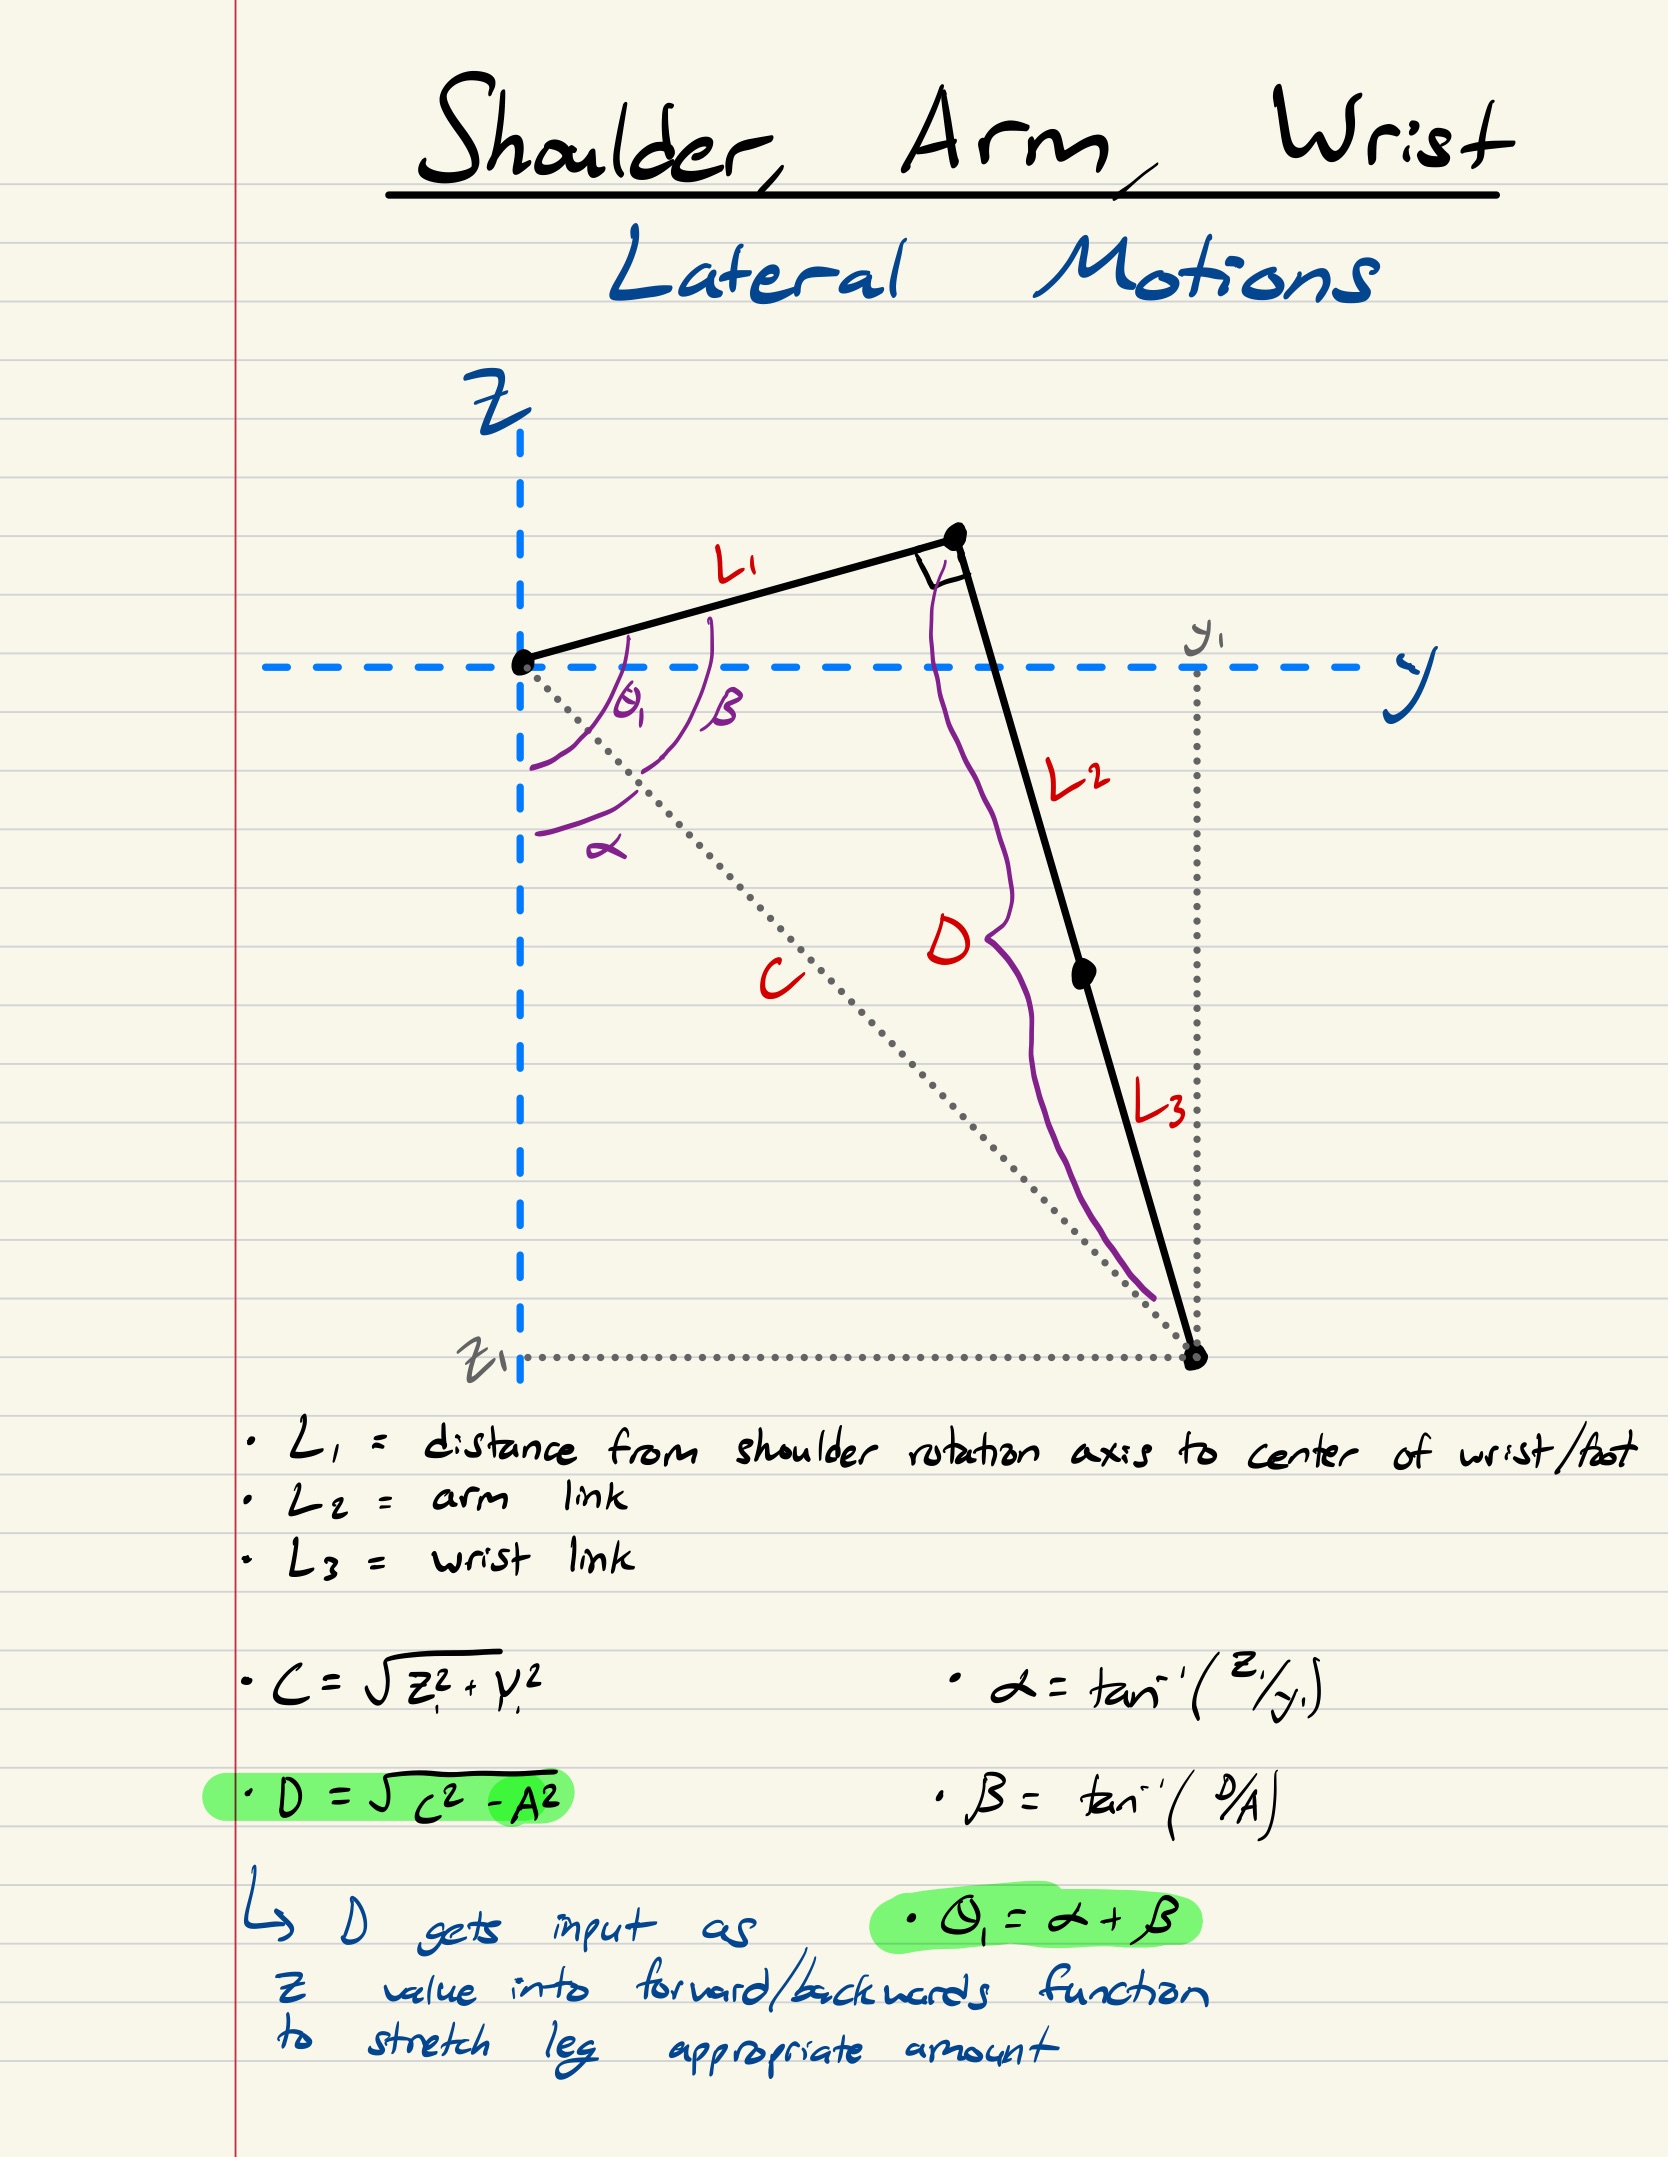 Shoulder, Arm, Wrist
Lateral Motions
Z
L1
y1
y
θ1
β
L2
α
D
C
L3
Z1
• L1 = distance from shoulder rotation axis to center of wrist/foot
• L2 = arm link
• L3 = wrist link
• C = √(Z1² + Y1²)
• α = tan⁻¹(Z1/y1)
• D = √(C² - A²)
• β = tan⁻¹(D/A)
↳ D gets input as
• θ1 = α + β
Z value into forward/backwards function
to stretch leg appropriate amount